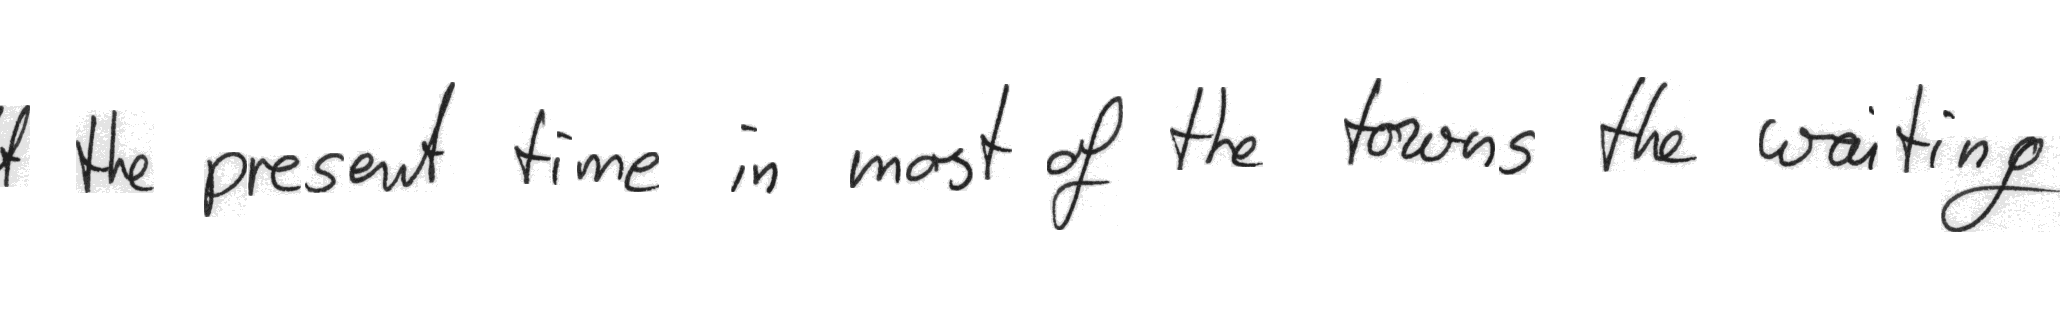 the present time in most of the towns the waiting